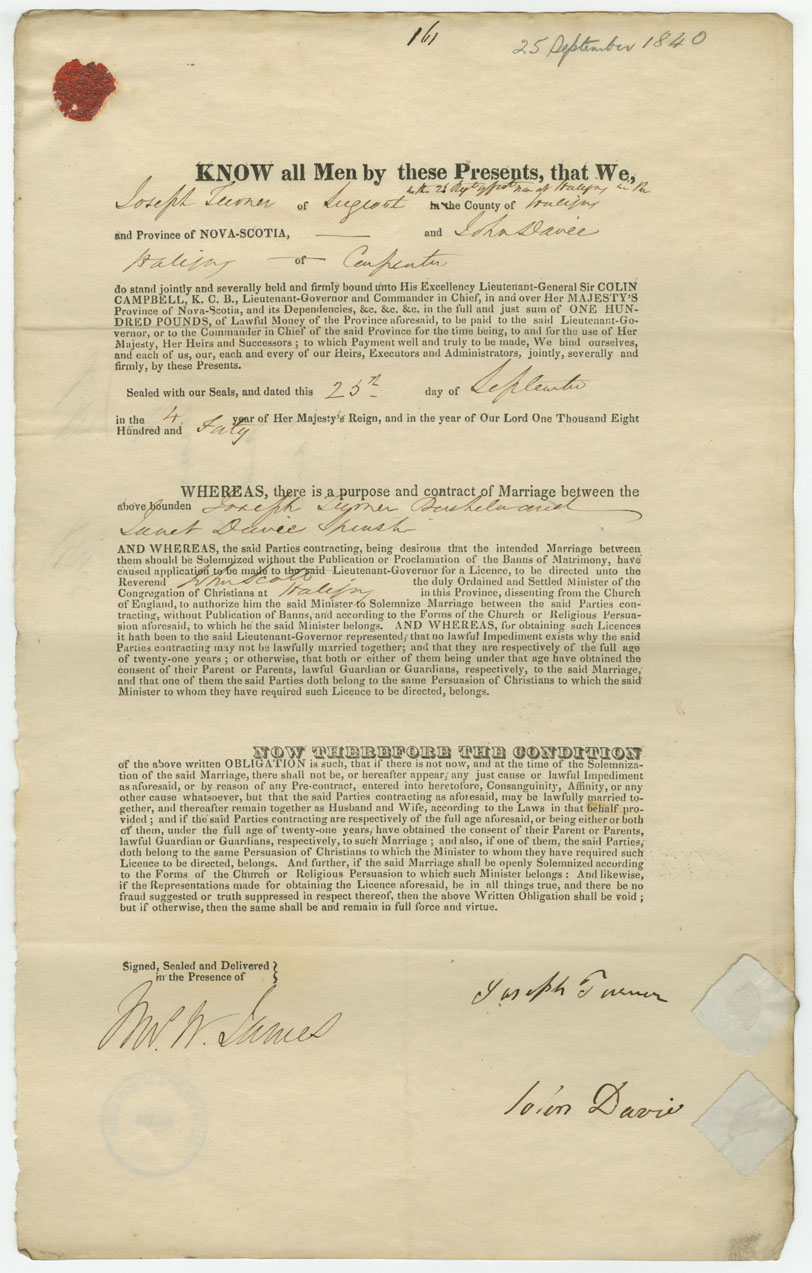 161
25 September 1840
KNOW all Men by these Presents, that We,
in the 23 Reg of foot now at Halifax in the
Joseph Turner of Sergeant in the County of Halifax
and Province of NOVA-SCOTIA, — and John Davie
Halifax — of — Carpenter
do stand jointly and severally held and firmly bound unto His Excellency Lieutenant-General Sir COLIN
CAMPBELL, K. C. B., Lieutenant-Governor and Commander in Chief, in and over Her MAJESTY'S
Province of Nova-Scotia, and its Dependencies, &c. &c. &c. in the full and just sum of ONE HUN-
DRED POUNDS, of Lawful Money of the Province aforesaid, to be paid to the said Lieutenant-Go-
vernor, or to the Commander in Chief of the said Province for the time being, to and for the use of Her
Majesty, Her Heirs and Successors ; to which Payment well and truly to be made, We bind ourselves,
and each of us, our, each and every of our Heirs, Executors and Administrators, jointly, severally and
firmly, by these Presents.
Sealed with our Seals, and dated this 25th day of September
in the 4 year of Her Majesty's Reign, and in the year of Our Lord One Thousand Eight
Hundred and Forty
WHEREAS, there is a purpose and contract of Marriage between the
above bounden Joseph Turner Bachelor and
Janet Davie Spinster
AND WHEREAS, the said Parties contracting, being desirous that the intended Marriage between
them should be Solemnized without the Publication or Proclamation of the Banns of Matrimony, have
caused application to be made to the said Lieutenant-Governor for a Licence, to be directed unto the
Reverend John Scott the duly Ordained and Settled Minister of the
Congregation of Christians at Halifax in this Province, dissenting from the Church
of England, to authorize him the said Minister to Solemnize Marriage between the said Parties con-
tracting, without Publication of Banns, and according to the Forms of the Church or Religious Persua-
sion aforesaid, to which he the said Minister belongs. AND WHEREAS, for obtaining such Licences
it hath been to the said Lieutenant-Governor represented, that no lawful Impediment exists why the said
Parties contracting may not be lawfully married together; and that they are respectively of the full age
of twenty-one years ; or otherwise, that both or either of them being under that age have obtained the
consent of their Parent or Parents, lawful Guardian or Guardians, respectively, to the said Marriage,
and that one of them the said Parties doth belong to the same Persuasion of Christians to which the said
Minister to whom they have required such Licence to be directed, belongs.
NOW THEREFORE THE CONDITION
of the above written OBLIGATION is such, that if there is not now, and at the time of the Solemniza-
tion of the said Marriage, there shall not be, or hereafter appear, any just cause or lawful Impediment
as aforesaid, or by reason of any Pre-contract, entered into heretofore, Consanguinity, Affinity, or any
other cause whatsoever, but that the said Parties contracting as aforesaid, may be lawfully married to-
gether, and thereafter remain together as Husband and Wife, according to the Laws in that behalf pro-
vided ; and if the said Parties contracting are respectively of the full age aforesaid, or being either or both
of them, under the full age of twenty-one years, have obtained the consent of their Parent or Parents,
lawful Guardian or Guardians, respectively, to such Marriage ; and also, if one of them, the said Parties,
doth belong to the same Persuasion of Christians to which the Minister to whom they have required such
Licence to be directed, belongs. And further, if the said Marriage shall be openly Solemnized according
to the Forms of the Church or Religious Persuasion to which such Minister belongs : And likewise,
if the Representations made for obtaining the Licence aforesaid, be in all things true, and there be no
fraud suggested or truth suppressed in respect thereof, then the above Written Obligation shall be void ;
but if otherwise, then the same shall be and remain in full force and virtue.
Signed, Sealed and Delivered
in the Presence of
W. James
Joseph Turner
John Davie